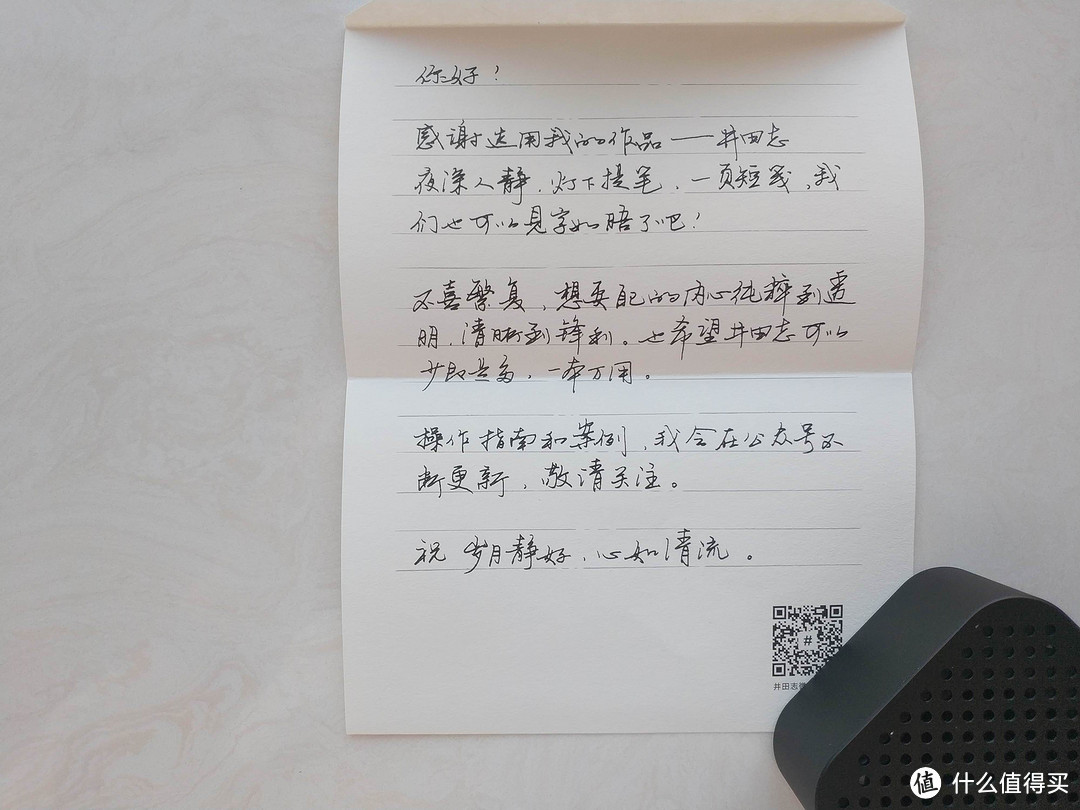 你好！
感谢选用我的作品——井田志
夜深人静，灯下提笔，一页短笺，我
们也可以见字如晤了吧！
不喜繁复，想要自己的内心纯粹到透
明，清晰到锋利。也希望井田志可以
少即是多，一本万用。
操作指南和案例，我会在公众号不
断更新，敬请关注。
祝 岁月静好，心如清流。
#
井田志微
值 什么值得买